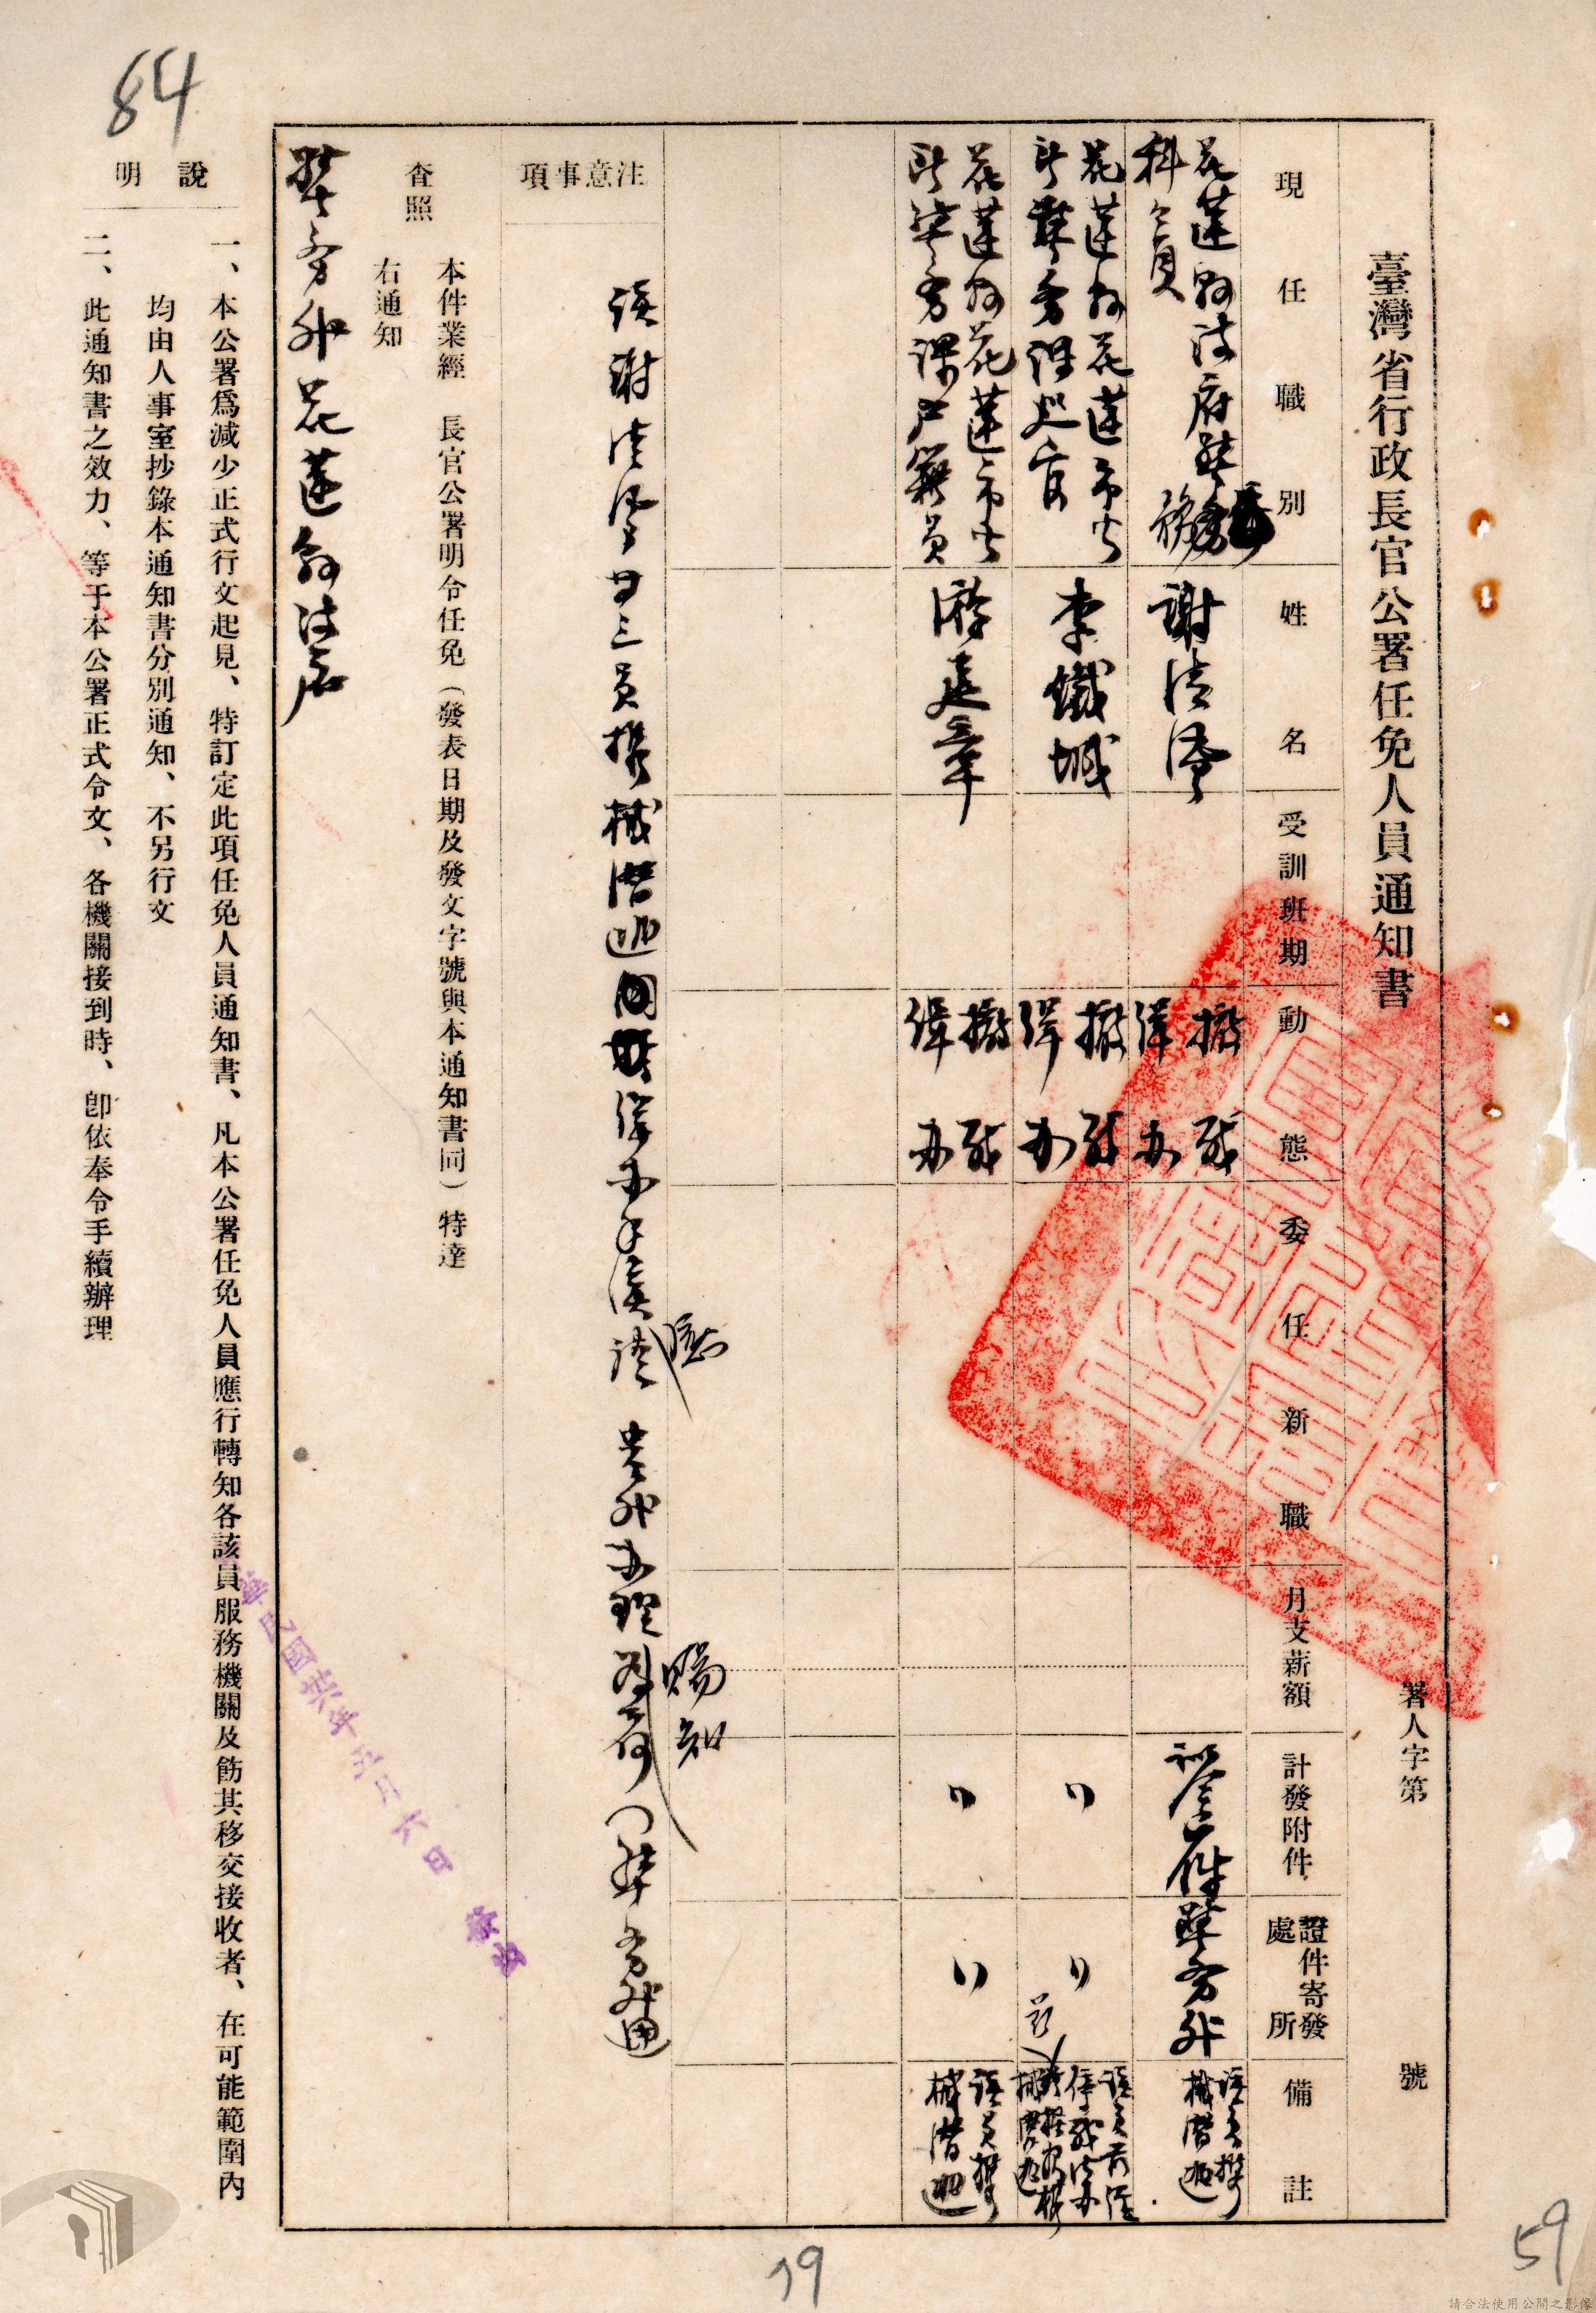 臺灣省行政長官公署任免人員通知書
署人字第　　號
現任職別
姓名
受訓班期
動態
委任新職
月支薪額
計發附件
證件寄發
處所
備註
花蓮縣政府警務
科科員
謝清淳
撤職
緝办
訓令一件
警务处
該員携
械潛逃
花蓮縣花蓮市
警务課巡官
李鐵城
撤職
緝办
〃
〃
該員前經
停職法办
花蓮縣花蓮市
警务課戶籍員
游建章
撤職
緝办
〃
〃
該員携
械潛逃
注意事項
該謝清淳等三員携械潛逃
緝办
貴处办理
賜知
本件業經　長官公署明令任免（發表日期及發文字號與本通知書同）特達
查照
右通知
警务处花蓮縣政府
說明
一、本公署爲減少正式行文起見、特訂定此項任免人員通知書、凡本公署任免人員應行轉知各該員服務機關及飭其移交接收者、在可能範圍內
均由人事室抄錄本通知書分別通知、不另行文
二、此通知書之效力、等于本公署正式令文、各機關接到時、卽依奉令手續辦理
華民國卅六年三月六日
84
79
59
請合法使用公開之影像